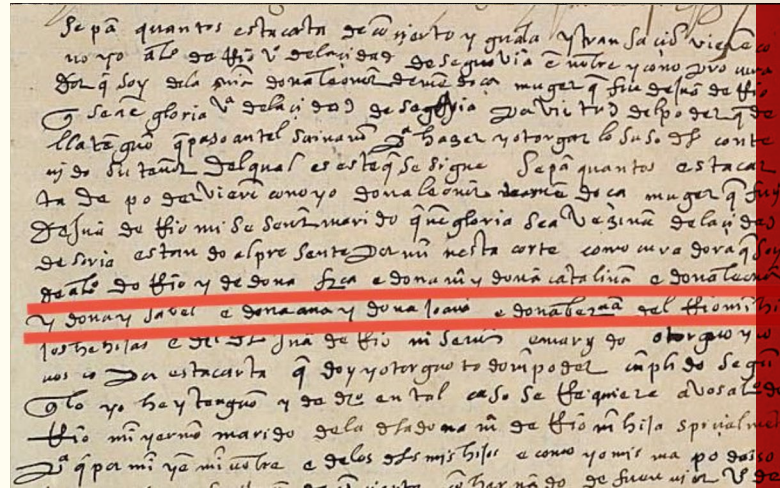 Sepā quantos esta carta de conçierto y guala y transaciō vierē co
mo yo alº de Rio vº de la çidad de segovia ē nōbre y como procura
dor q soy dela sra dona leonor de mēdoça muger q fue de juā de Rio
q seā ē gloria vª dela çidad de segovia por virtud del poder que de
lla tēguo q paso antel scrivano pª hazer y otorgar lo suso dho conte
nido su tenor del qual es este q se sigue Sepā quantos esta car
ta de poder vierē como yo dona leonor de mēdoca muger q fuy
de juā de Rio mi señor marido q ē gloria sea vezina de la çidad
de soria estando al presente por mī nesta corte como curadora q soy
de alº do Rio y de dona frca e dona mª y dona catalina e dona leonor
y dona ysavel e dona ana y dona Joana e dona del Rio mis hi
jos he hijas e del dho Juā de Rio mi señor e marydo otorguo y co
nosco por esta carta q doy y otorguo todo mi poder cūplido segū
q lo yo he y tenguo y de drº en tal caso se Requiere a vos alº de
Rio mi yerno marido de la dha dona mª de Rio mi hija speçialmēte
pª q por mi y ē mi nōbre e de los dhos mis hijos e como yo misma podais
hernādo de